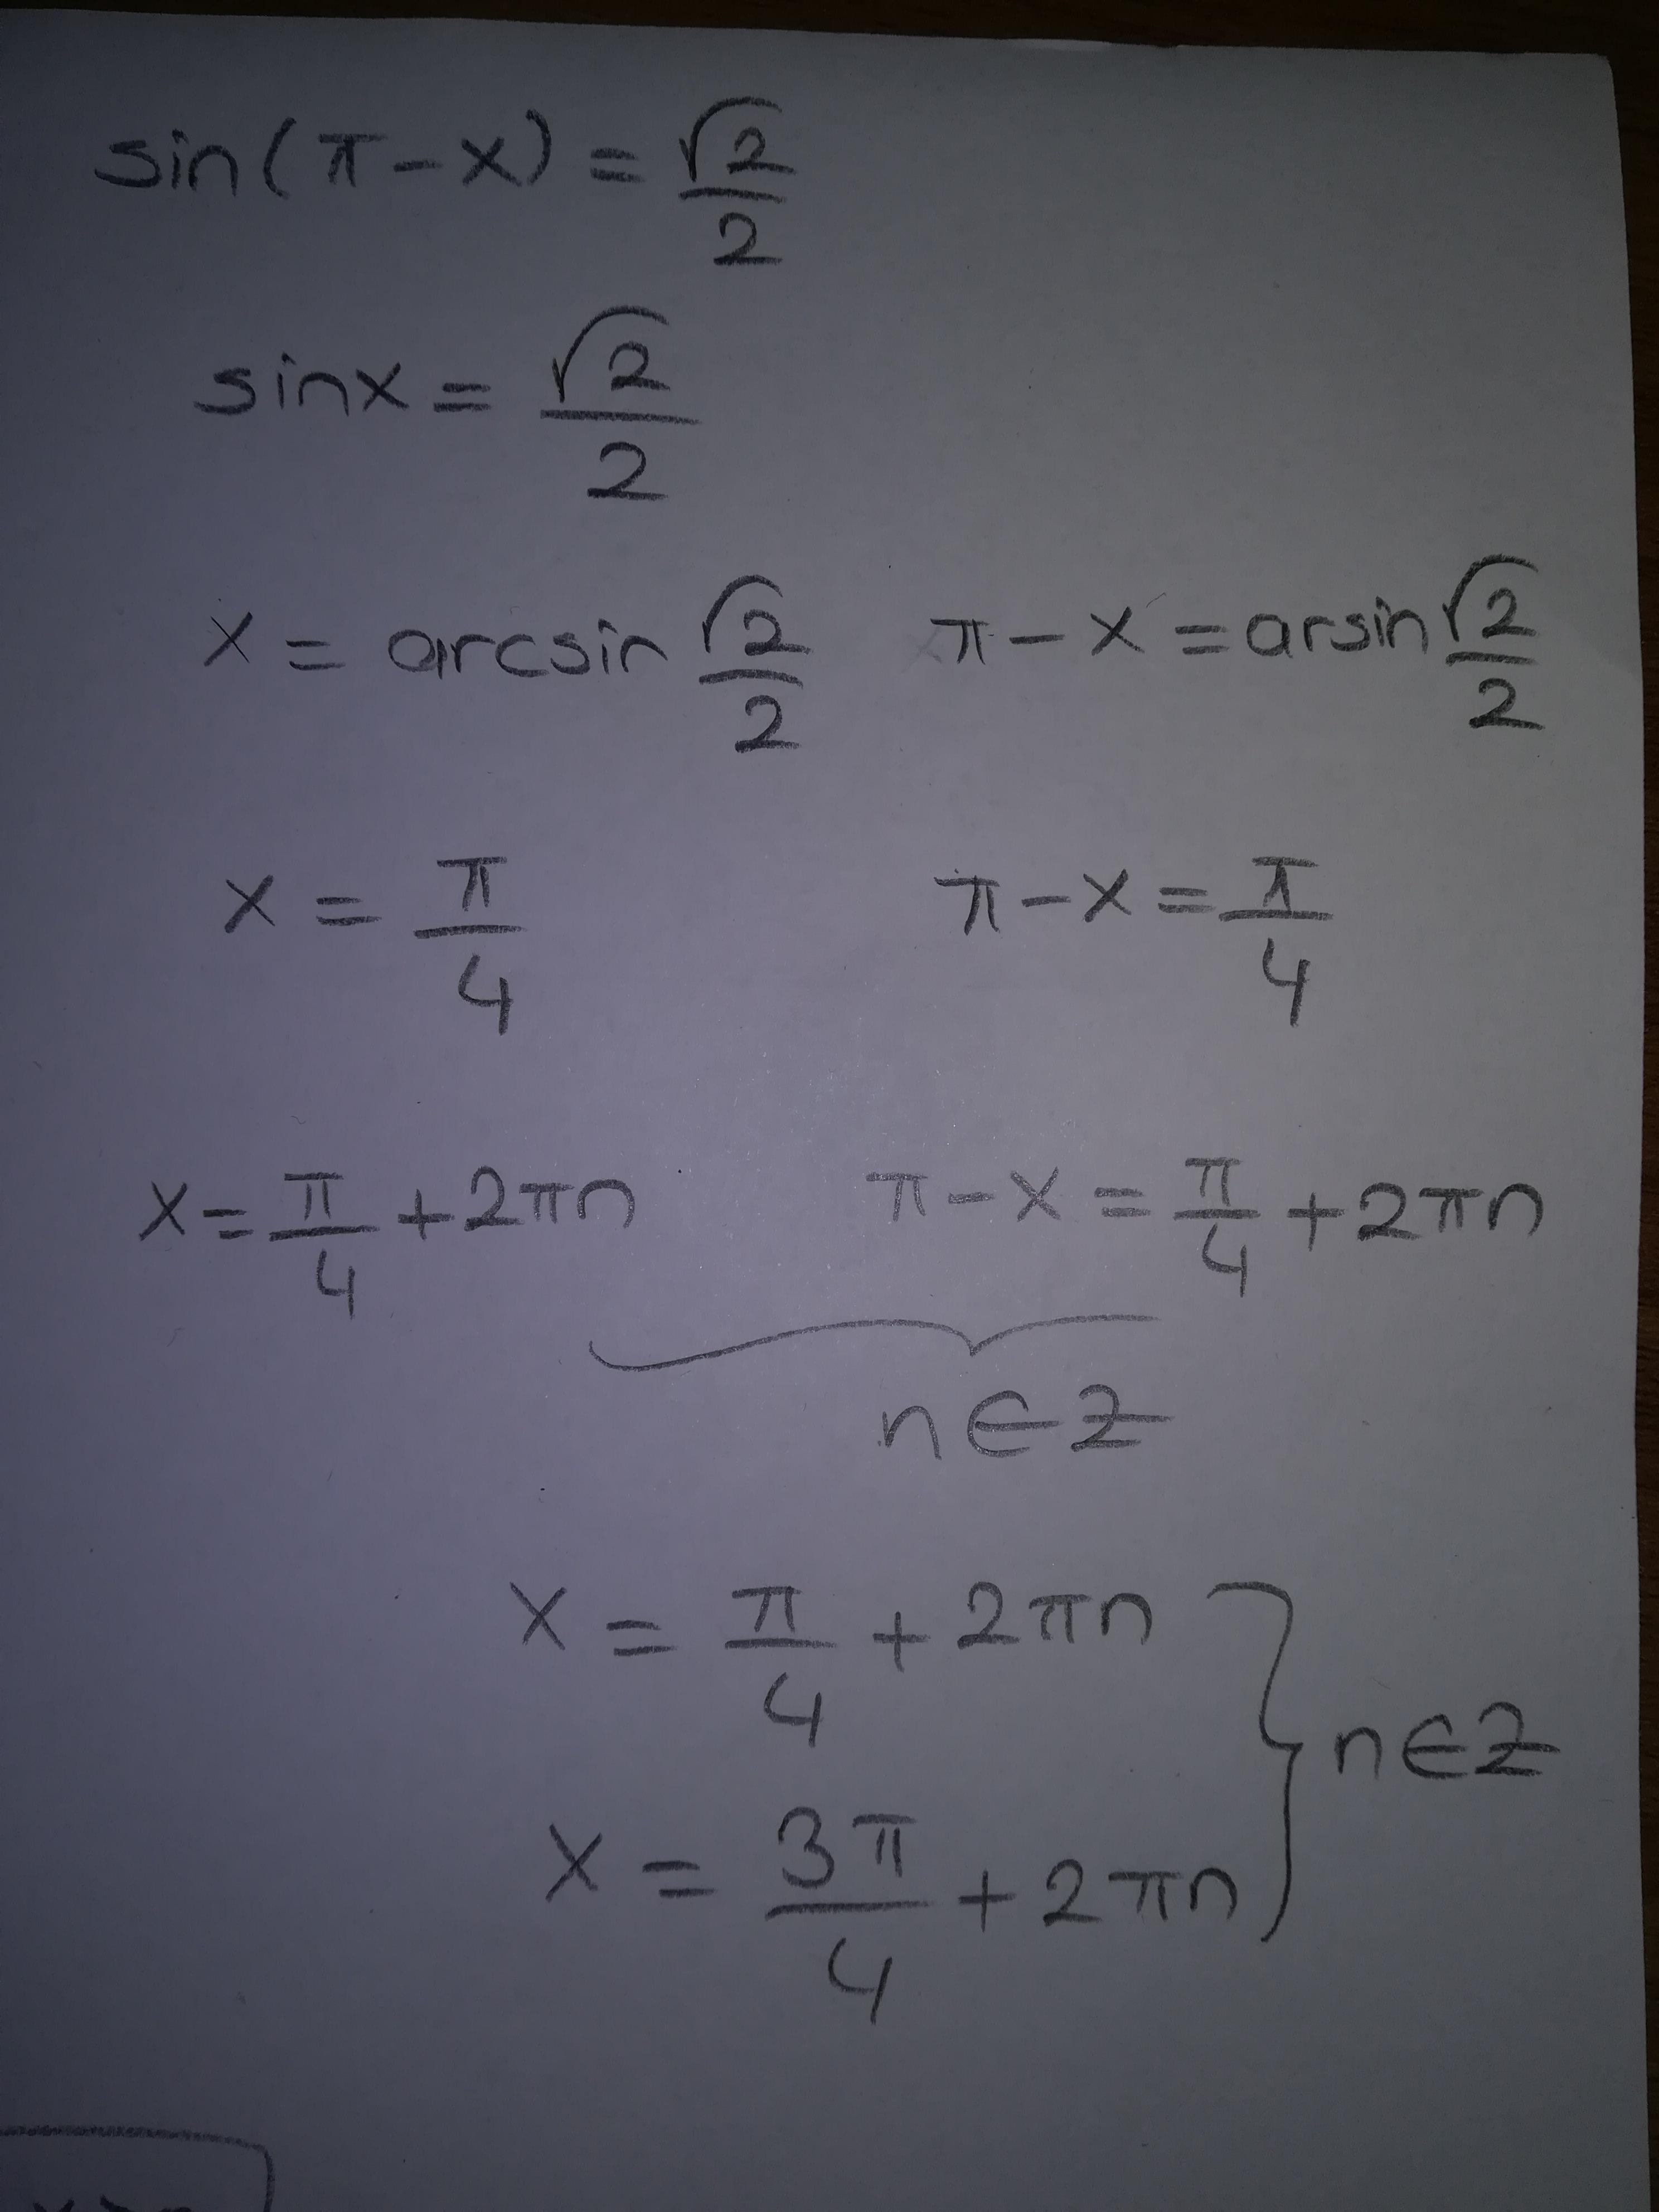 sin(π-x) = √2/2
sinx = √2/2
x = arcsin √2/2 π-x = arsin √2/2
x = π/4 π-x = π/4
x = π/4 + 2πn π-x = π/4 + 2πn
n∈Z
x = π/4 + 2πn
n∈Z
x = 3π/4 + 2πn